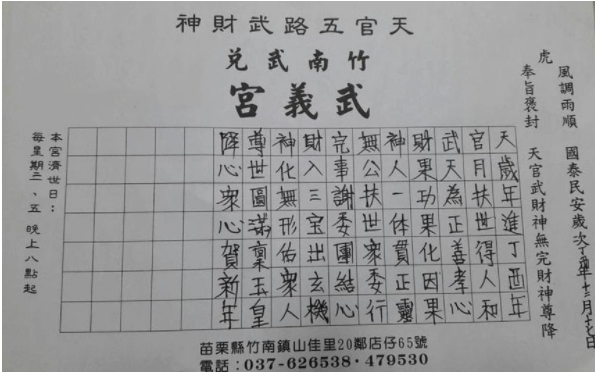 天官五路武財神
竹南武兌
武義宮
風調雨順 國泰民安歲次丁酉年十二月十七日
虎
奉旨褒封 天官武財神無完財神尊降
天歲年進丁酉年
官月扶世得人和
武天為正善孝心
財果功果化因果
神人一体貫正靈
無公扶世眾委行
完事謝委團結心
財入三宝出玄機
神化無形佑眾人
尊世圖滿稟玉皇
降心眾心賀新年
本宮濟世日：
每星期二、五 晚上八點起
苗栗縣竹南鎮山佳里20鄰店仔65號
電話：037-626538・479530